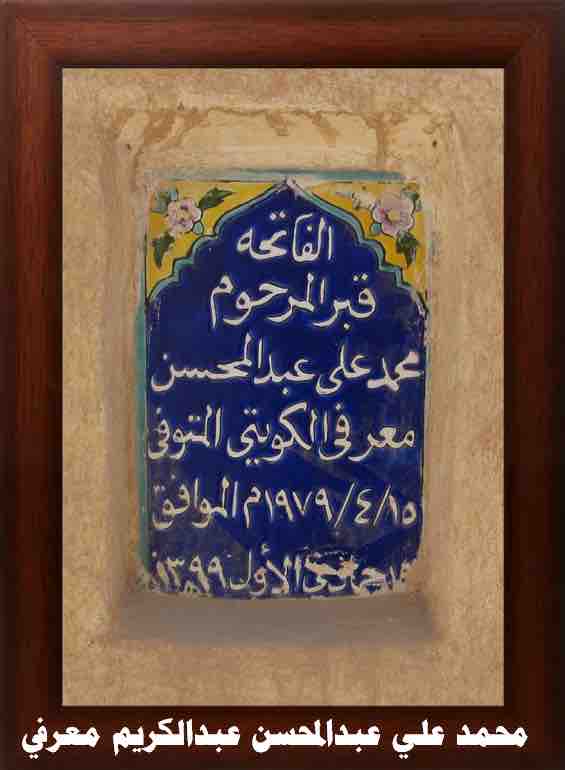 الفاتحه
قبر المرحوم
محمد علي عبدالمحسن
معرفي الكويتي المتوفى
١٥/٤/١٩٧٩م الموافق
الأول ١٣٩٩
محمد علي عبدالمحسن عبدالكريم معرفي